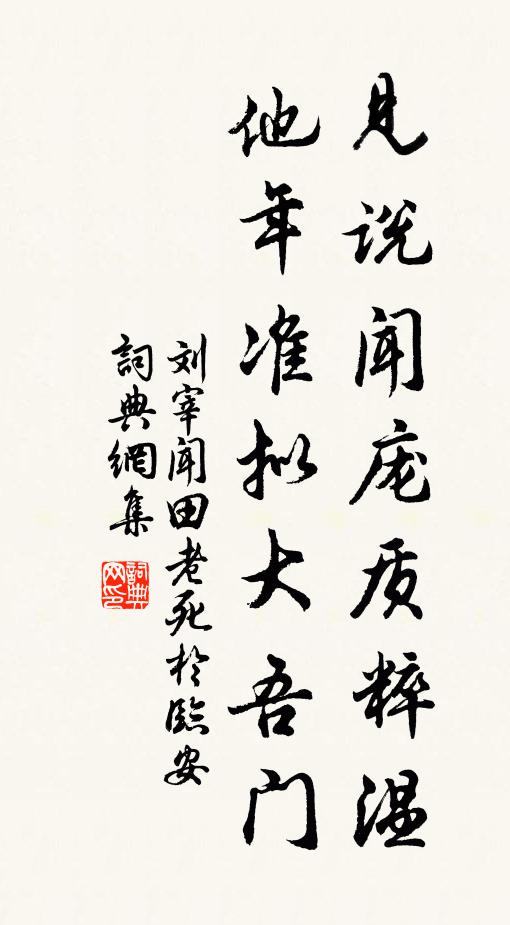 见说闻庞质粹温
他年准拟大吾门
刘宰闻田老死於臨安
詞典網集
詞典网印